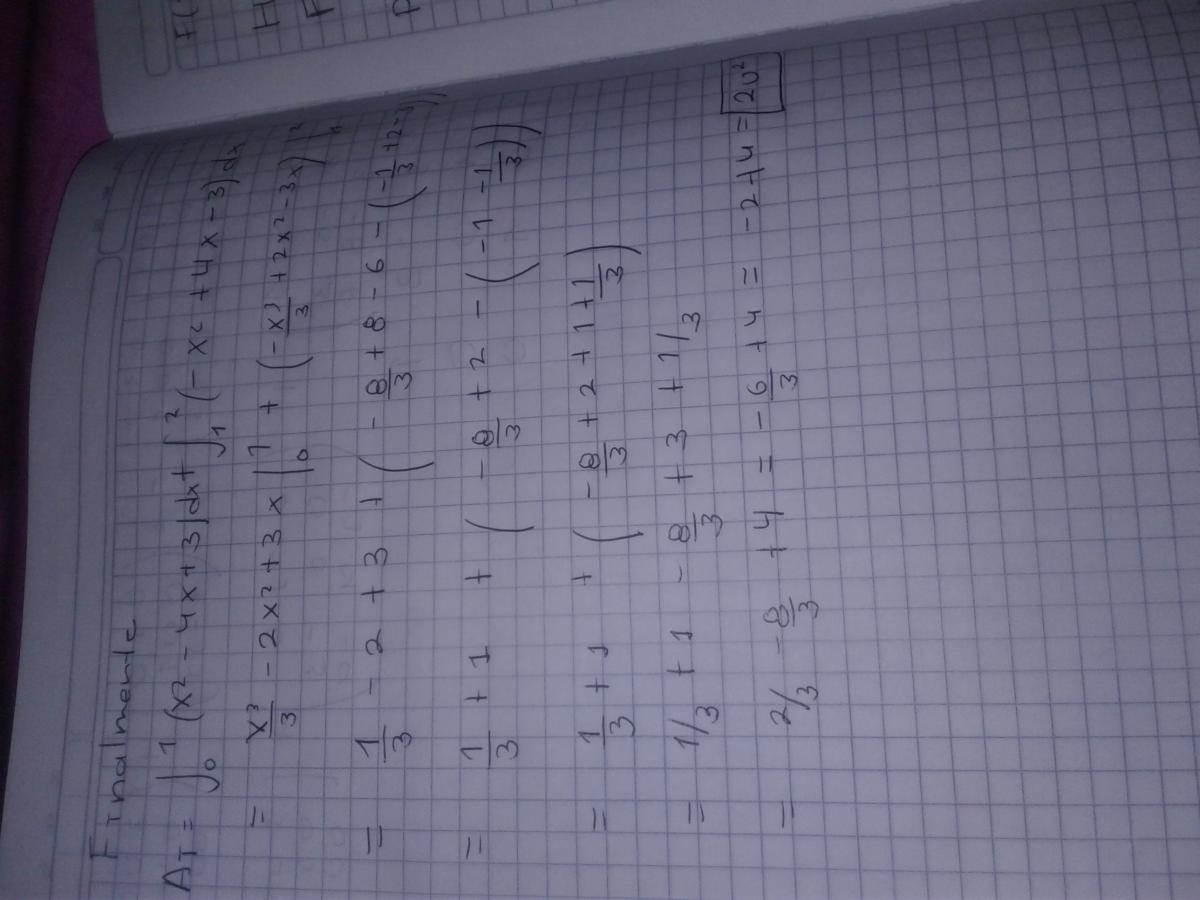 Finalmente
A_T = ∫₀¹ (x² - 4x + 3)dx + ∫₁² (-x² + 4x - 3)dx
= x³/3 - 2x² + 3x |₀¹ + (-x³/3 + 2x² - 3x)|₁²
= 1/3 - 2 + 3 + (-8/3 + 8 - 6 - (-1/3 + 2 - 3))
= 1/3 + 1 + (-8/3 + 2 - (-1 - 1/3))
= 1/3 + 1 + (-8/3 + 2 + 1 + 1/3)
= 1/3 + 1 - 8/3 + 3 + 1/3
= 2/3 - 8/3 + 4 = -6/3 + 4 = -2+4 = 2u²
F(
H
F
P